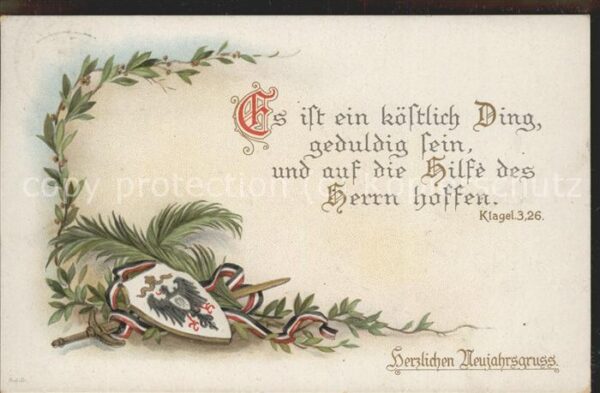 Es ist ein köstlich Ding,
geduldig sein,
und auf die Hilfe des
Herrn hoffen.
Klagel. 3, 26.
Herzlichen Neujahrsgruss.
copy protection Kopierschutz